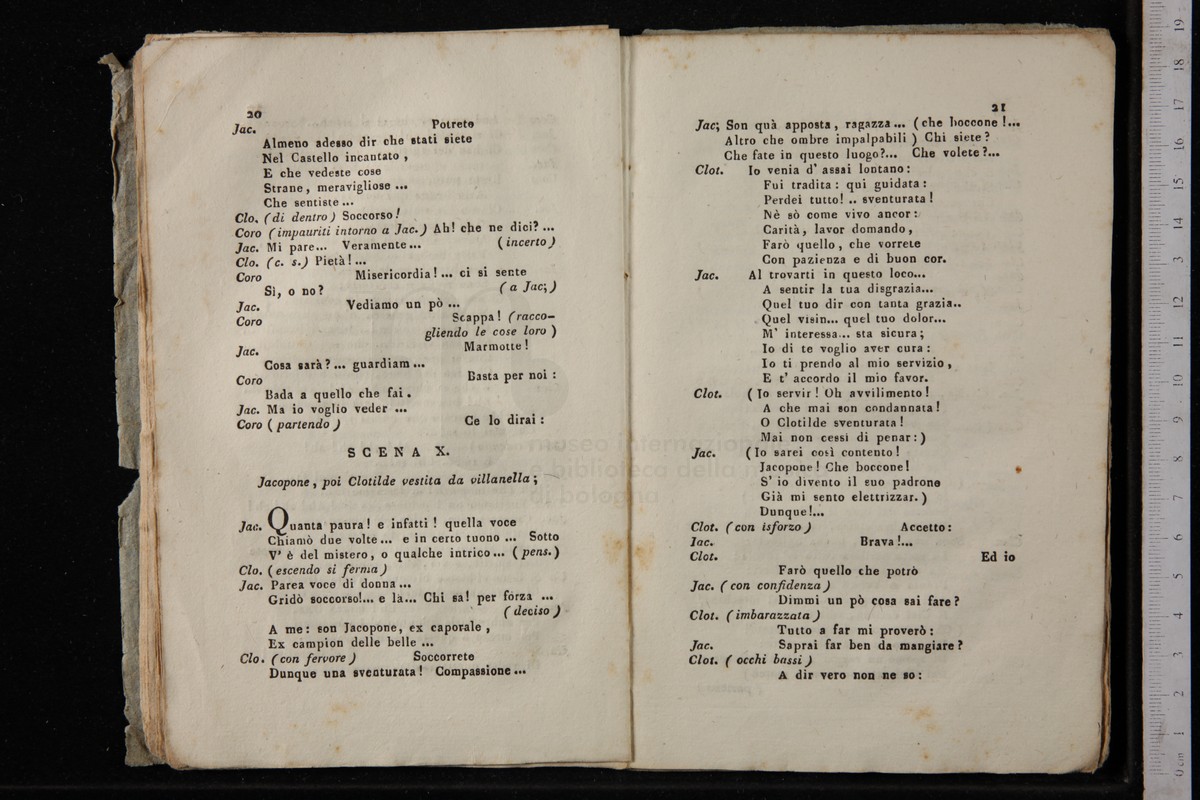 20
Jac. Potrete
Almeno adesso dir che stati siete
Nel Castello incantato ,
E che vedeste cose
Strane , meravigliose ...
Che sentiste ...
Clo. (di dentro) Soccorso!
Coro (impauriti intorno a Jac.) Ah! che ne dici? ...
Jac. Mi pare... Veramente... (incerto)
Clo. (c. s.) Pietà!...
Coro Misericordia!... ci si sente
Sì, o no? (a Jac;)
Jac. Vediamo un pò ...
Coro Scappa! (racco-
gliendo le cose loro)
Jac. Marmotte!
Cosa sarà?... guardiam...
Coro Basta per noi :
Bada a quello che fai.
Jac. Ma io voglio veder ...
Coro (partendo) Ce lo dirai :
SCENA X.
Jacopone, poi Clotilde vestita da villanella;
Jac. Quanta paura! e infatti! quella voce
Chiamò due volte... e in certo tuono ... Sotto
V' è del mistero, o qualche intrico... (pens.)
Clo. (escendo si ferma)
Jac. Parea voce di donna...
Gridò soccorso!... e là... Chi sa! per forza ...
(deciso)
A me: son Jacopone, ex caporale ,
Ex campion delle belle ...
Clo. (con fervore) Soccorrete
Dunque una sventurata! Compassione...
21
Jac; Son quà apposta, ragazza... (che boccone!...
Altro che ombre impalpabili ) Chi siete?
Che fate in questo luogo?... Che volete?...
Clot. Io venia d' asssai lontano:
Fui tradita: qui guidata:
Perdei tutto! .. sventurata!
Nè sò come vivo ancor:
Carità, lavor domando,
Farò quello, che vorrete
Con pazienza e di buon cor.
Jac. Al trovarti in questo loco...
A sentir la tua disgrazia...
Quel tuo dir con tanta grazia..
Quel visin... quel tuo dolor...
M' interessa... sta sicura;
Io di te voglio aver cura:
Io ti prendo al mio servizio,
E t' accordo il mio favor.
Clot. (Io servir! Oh avvilimento!
A che mai son condannata!
O Clotilde sventurata!
Mai non cessi di penar:)
Jac. (Io sarei così contento!
Jacopone! Che boccone!
S' io divento il suo padrone
Già mi sento elettrizzar.)
Dunque!...
Clot. (con isforzo) Accetto:
Iac. Brava!...
Clot. Ed io
Farò quello che potrò
Jac. (con confidenza)
Dimmi un pò cosa sai fare?
Clot. (imbarazzata)
Tutto a far mi proverò:
Jac. Saprai far ben da mangiare?
Clot. (occhi bassi)
A dir vero non ne so:
museo internazionale
e biblioteca della m
di bologna
0 cm 1 2 3 4 5 6 7 8 9 10 11 12 13 14 15 16 17 18 19